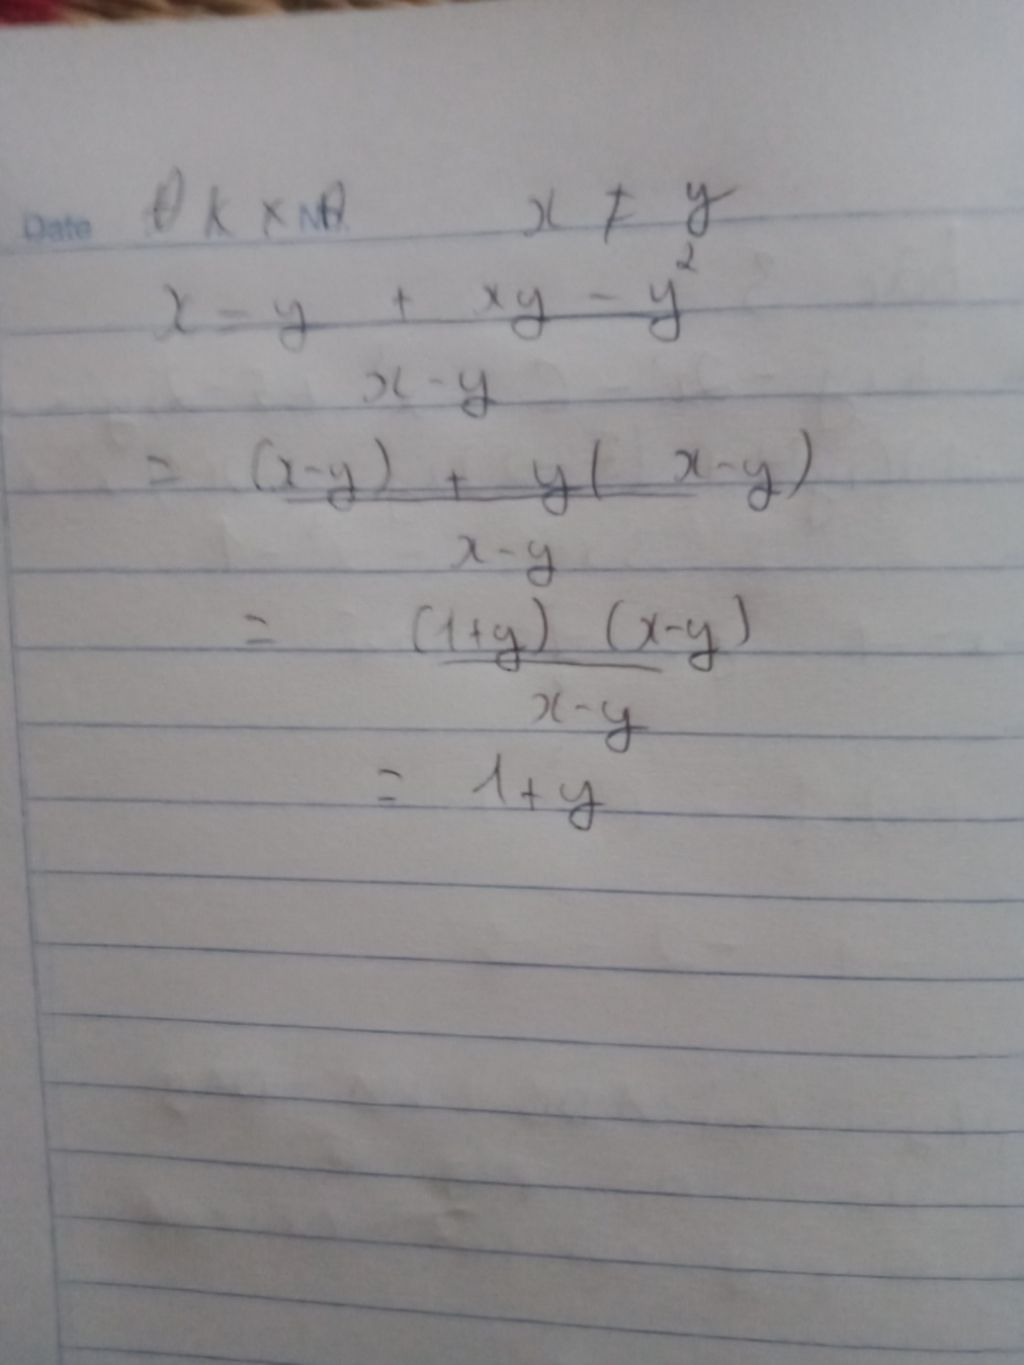 Date x ≠ y
x - y + xy - y²
x - y
= (x-y) + y( x-y)
x - y
= (1+y) (x-y)
x - y
= 1+y